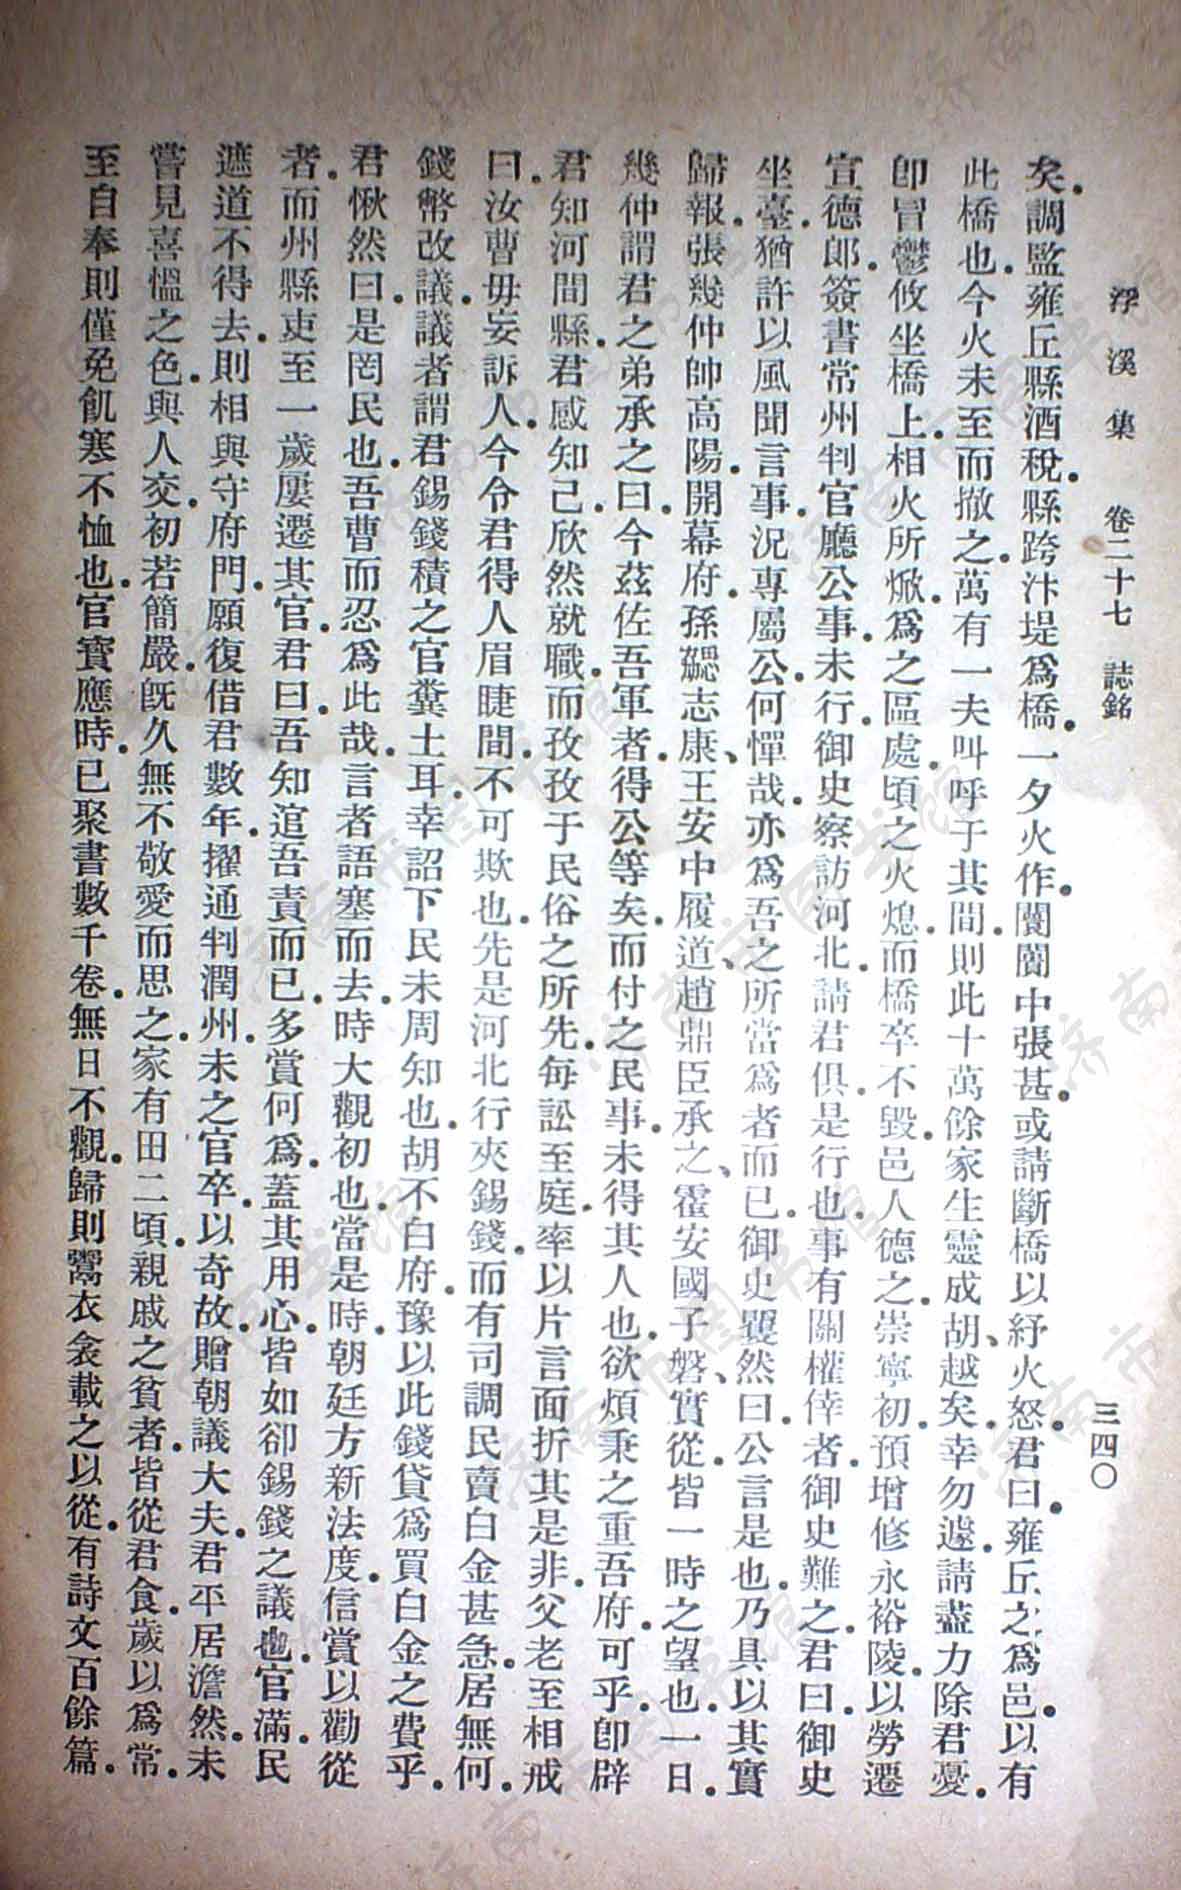 浮溪集　卷二十七　誌銘　三四〇
矣。調監雍丘縣酒稅。縣跨汴堤爲橋。一夕火作。闤闠中張甚。或請斷橋以紓火怒。君曰。雍丘之爲邑。以有
此橋也。今火未至而撤之。萬有一夫叫呼于其間。則此十萬餘家生靈成胡、越矣。幸勿遽。請盡力除君憂。
卽冒鬱攸坐橋上。相火所焮。爲之區處。頃之火熄。而橋卒不毀。邑人德之。崇寧初。預增修永裕陵。以勞遷
宣德郎。簽書常州判官廳公事。未行。御史察訪河北。請君俱。是行也。事有關權倖者。御史難之。君曰。御史
坐臺。猶許以風聞言事。況專屬公。何憚哉。亦爲吾之所當爲者而已。御史矍然曰。公言是也。乃具以其實
歸報。張幾仲帥高陽。開幕府。孫勰志康、王安中履道、趙鼎臣承之、霍安國子磐、實從。皆一時之望也。一日。
幾仲謂君之弟承之曰。今茲佐吾軍者。得公等矣。而付之民事。未得其人也。欲煩秉之重吾府。可乎。卽辟
君知河間縣。君感知己。欣然就職。而孜孜于民俗之所先。每訟至庭。率以片言面折其是非。父老至相戒
曰。汝曹毋妄訴人。今令君得人眉睫間。不可欺也。先是河北行夾錫錢。而有司調民賣白金甚急。居無何。
錢幣改議。議者謂君錫錢積之官。糞土耳。幸詔下民未周知也。胡不白府。豫以此錢貸爲買白金之費乎。
君愀然曰。是罔民也。吾曹而忍爲此哉。言者語塞而去。時大觀初也。當是時。朝廷方新法度。信賞以勸從
者。而州縣吏至一歲屢遷其官。君曰。吾知逭吾責而已。多賞何爲。蓋其用心。皆如卻錫錢之議也。官滿。民
遮道不得去。則相與守府門。願復借君數年。擢通判潤州。未之官卒。以奇故。贈朝議大夫。君平居澹然。未
嘗見喜慍之色。與人交。初若簡嚴。旣久無不敬愛而思之。家有田二頃。親戚之貧者。皆從君食。歲以爲常。
至自奉則僅免飢寒不恤也。官寶應時。已聚書數千卷。無日不觀。歸則鬻衣衾載之以從。有詩文百餘篇。